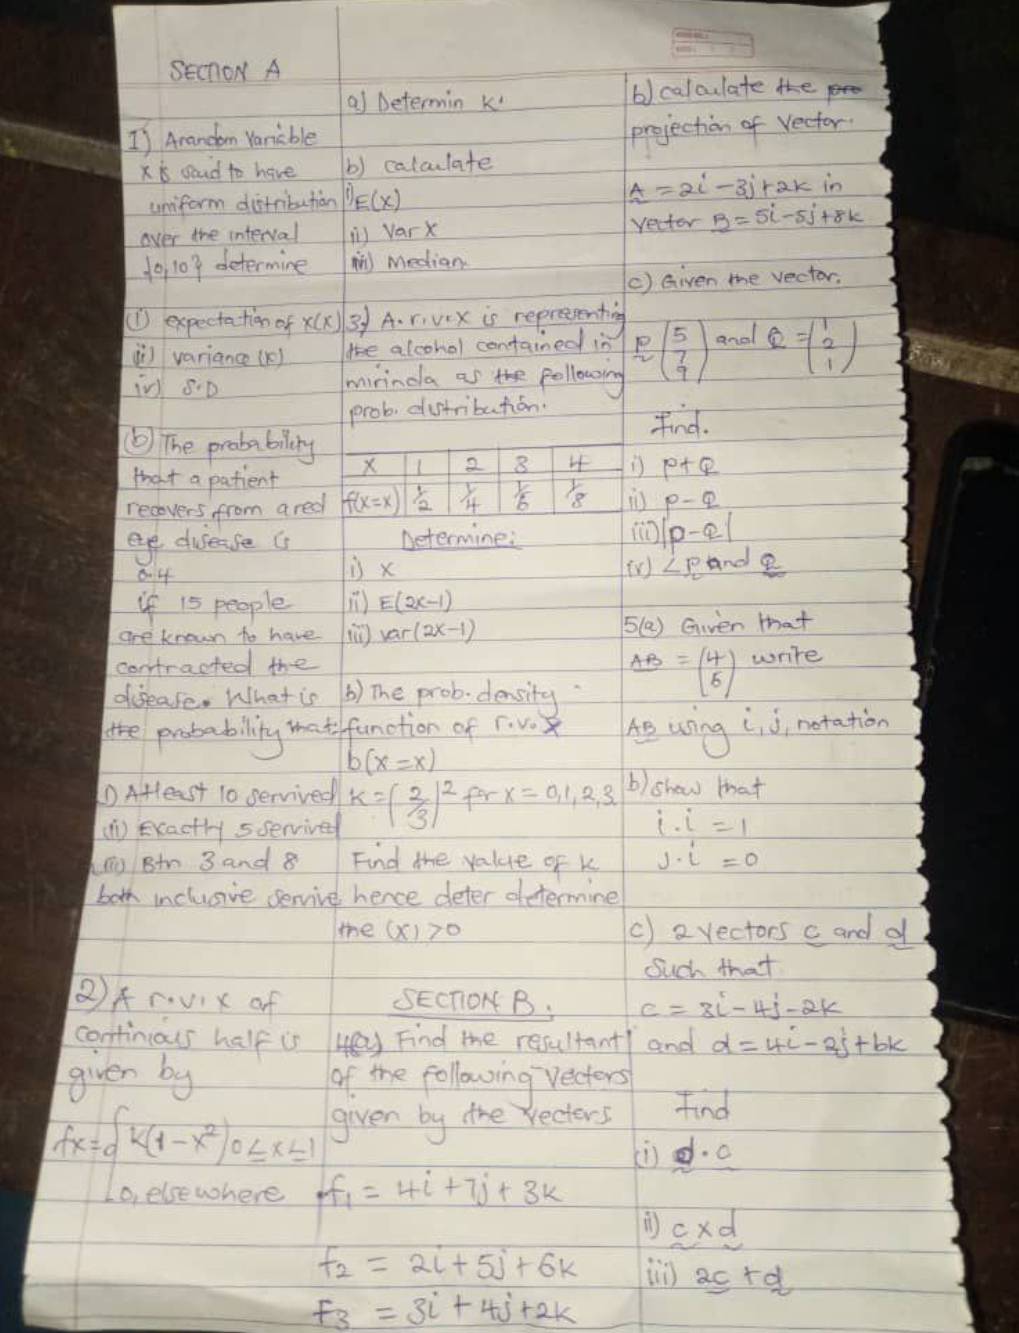 SECTION A
1) A random Variable
x is said to have
uniform distribution
over the interval
{0,10} determine
(i) expectation of x(x)
(ii) variance (x)
iv) S.D
(b) The probability
that a patient
recovers from a red
eye disease is
0.4
if 15 people
are known to have
contracted the
disease. What is
the probability that:
i) Atleast 10 servived
(ii) Exactly 5 servived
(iii) Btn 3 and 8
both inclusive servive
2) A r.v.x of
continious half is
given by
fx= { k(1-x²) 0≤x≤1
0, elsewhere
a) Determin k.
b) calculate
i) E(x)
ii) Var x
iii) Median
3) A.r.v.x is representing
the alcohol contained in
mirinda as the following
prob. distribution.
x | 1 | 2 | 3 | 4
f(x=x) | 1/2 | 1/4 | 1/8 | 1/8
Determine:
i) x
ii) E(2x-1)
iii) var(2x-1)
b) The prob. density
function of r.v.x
b(x=x)
k=(2/3)² for x=0,1,2,3
Find the value of k
hence deter determine
the (x) >0
SECTION B.
4(a) Find the resultant
of the following vectors
given by the vectors
f1 = 4i+7j+3k
f2 = 2i+5j+6k
f3 = 3i+4j+2k
b) calculate the pro
projection of vector.
A = 2i-3j+2k in
vector B = 5i-5j+8k
c) Given the vector.
P (5 7 9) and Q = (1 2 1)
Find.
i) p+Q
ii) p-Q
iii) |p-Q|
iv) ∠P and Q
5(a) Given that
AB = (4 6) write
AB using i, j, notation
b) show that
i.i = 1
j.i = 0
c) 2 vectors c and d
such that
c = 3i-4j-2k
and d = 4i-2j+6k
Find
(i) d.c
ii) c×d
iii) 2c+d